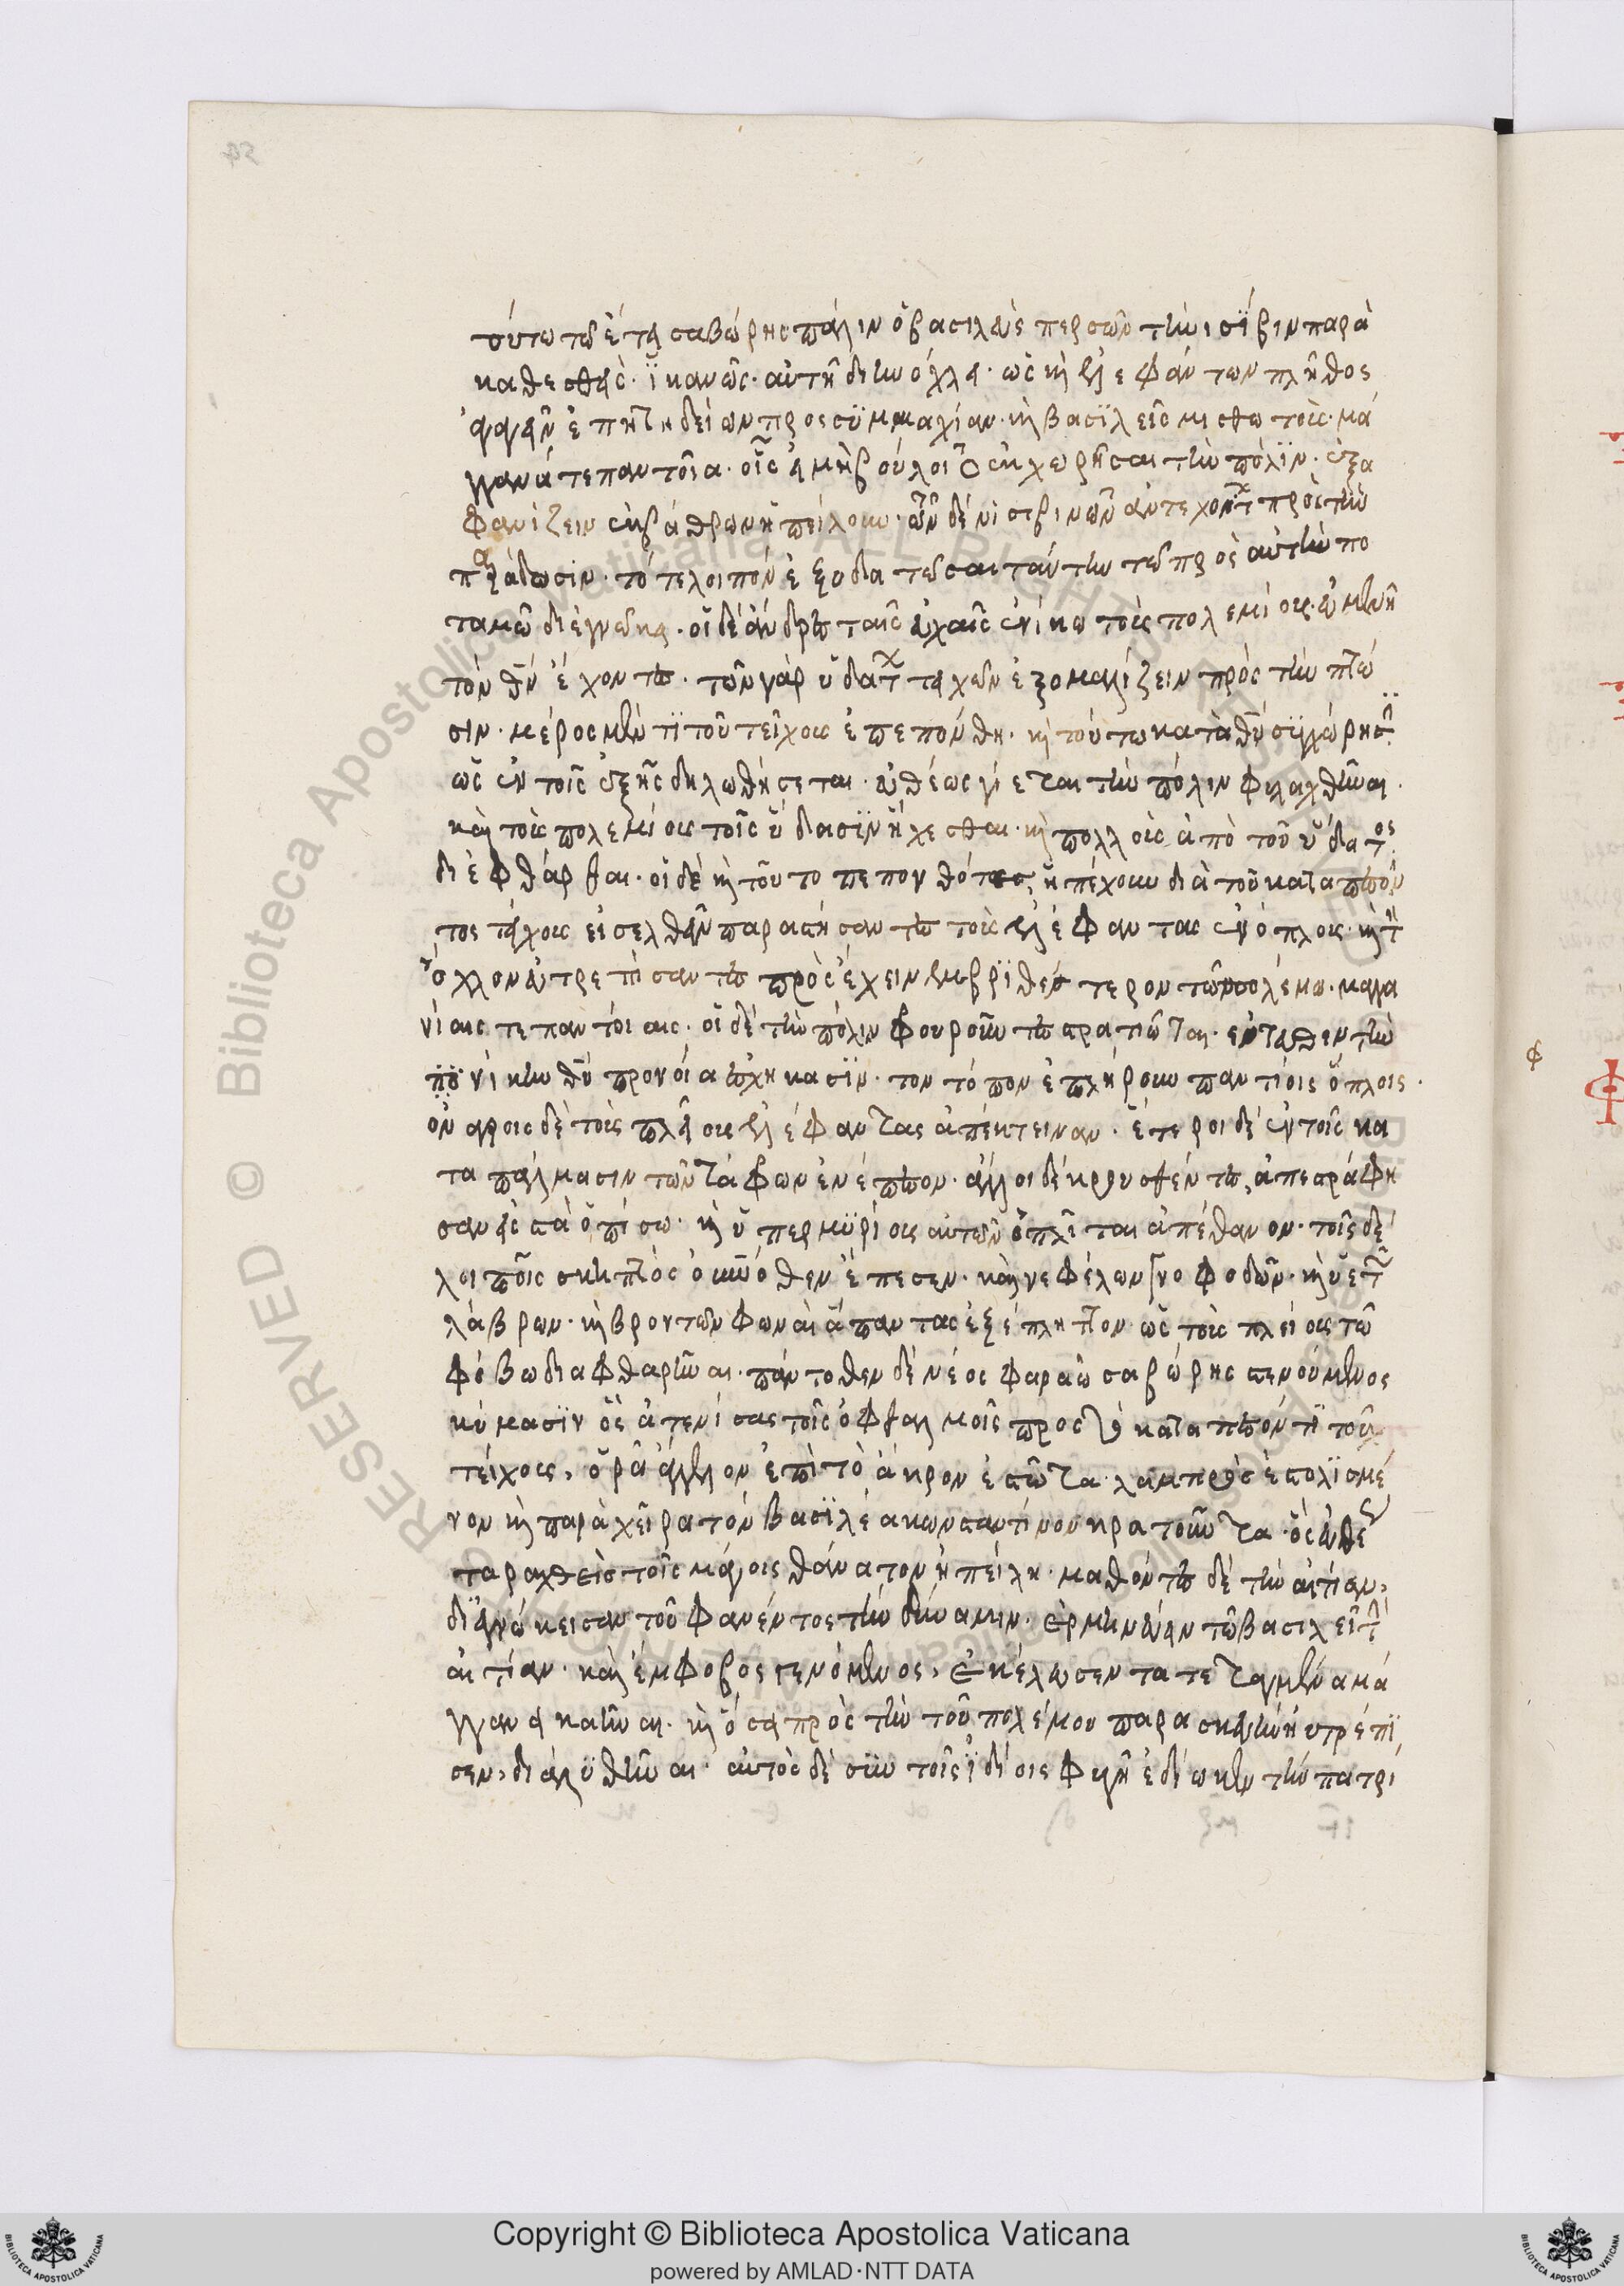 τούτω τῶ ἔτει σαβώρης πάλιν ὁ βασιλεὺς περσῶν τὴν νισίβιν παρα
καθεσθεὶς. ἱκανῶς αὐτῆ διηνόχλει. ὡς καὶ ἐλεφάντων πλῆθος
ἀγαγεῖν ἐπιτηδείων πρὸς συμμαχίαν. καὶ βασιλεῖς μισθωτοὺς. μάγ
γανά τε παντοῖα. οἷς εἰ μὴ βούλοιντο ἐκχωρῆσαι τὴν πόλιν. ἐξα
φανίζειν ἐκ βάθρων ἠπείλουν. τῶν δὲ νισιβινῶν ἀντεχόντων πρὸς τὴν
παράδοσιν. τότε λοιπὸν ἐξυδατῶσαι ταύτην τῶ πρὸς αὐτὴν πο
ταμῶ διέγνωκε. οἱ δὲ ἄνδρες ταῖς εὐχαῖς ἐνίκων τοὺς πολεμίους. εὐμενῆ
τὸν θν ἔχοντες. τῶν γὰρ ὑδάτων τὰ τειχῶν ἐξομαλίζειν πρὸς τὴν πτῶ
σιν. μέρος μέν τι τοῦ τείχους ἐπεπόνθη. καὶ τοῦτω κατὰ θυ συγχώρησιν
ὡς ἐν τοῖς ἑξῆς δηλωθήσεται. εὐθέως γίνεται τὴν πόλιν φυλαχθῆναι.
καὶ τοὺς πολεμίους τοῖς ὕδασιν ἤχεσθαι. καὶ πολλοὺς ἀπὸ τοῦ ὕδατος
διεφθάρθαι. οἱ δὲ καὶ τοῦτο πεπονθότες, ἠπείλουν διὰ τοῦ καταπεσόν
τος τείχους εἰσελθεῖν παραστήσαντες τοὺς ἐλέφαντας ἐνόπλους. καὶ
ὄχλον εὐτρεπίσαντες προσέχειν ἐμβριθέστερον τῶ πολέμω. μαγγα
νίαις τε παντοίαις. οἱ δὲ τὴν πόλιν φρουροῦντες στρατιῶται. ἐνταῦθεν τὴν
νίκην θυ προνοία ἐσχηκασιν. τὸν τόπον ἐπλήρουν παντίοις ὅπλοις.
ὀνάγροις δὲ τοὺς πλείους ἐλέφαντας ἀπέκτειναν. ἕτεροι δὲ ἐν τοῖς κα
τα πάλμασιν τῶν τάφρων ἐνέπεσον. ἄλλοι δὲ κρουσθέντες, ἀπεστράφη
σαν εἰς τὰ ὀπίσω. καὶ ὑπὲρ μυρίους αὐτῶν ὁπλῖται ἀπέθανον. τοῖς δὲ
λοιποῖς σκηπτὸς οὐρανόθεν ἔπεσεν. καὶ νεφέλων γνοφοδῶν. καὶ ὑετῶν
λάβρων. καὶ βροντῶν φωναὶ ἅπαντας ἐξέπληττον ὡς τοὺς πλείους τῶ
φόβω διαφθαρῆναι. πάντοθεν δὲ νέος φαραὼ σαβώρης στενούμενος
κύμασιν ὃς ἀτενίσας τοῖς ὀφθαλμοῖς πρὸς τὸ καταπεσόν τι τοῦ
τείχους, ὁρᾶ ἄγγελον ἐπὶ τὸ ἄκρον ἑστῶτα λαμπρῶς ἐστολισμέ
νον καὶ παρὰ χεῖρα τὸν βασιλέα κωνσταντίνον κρατοῦντα. ὃς εὐθὺς
ταραχθεὶς τοῖς μάγοις θάνατον ἠπείλη. μαθόντες δὲ τὴν αἰτίαν,
διεγνώκεισαν τοῦ φανέντος τὴν δύναμιν. ἑρμηνεύειν τῶ βασιλεῖ τὴν
αἰτίαν. καὶ ἔμφοβος γενόμενος, ἐκέλευσεν τά τε ταγμένα μάγ
γανα καῆναι. καὶ ὅσα πρὸς τὴν τοῦ πολέμου παρασκευὴν ηὐτρέπι
σεν, διαλυθῆναι. αὐτὸς δὲ σὺν τοῖς ἰδίοις φυγῆ ἐδίωκεν τὴν πατρί